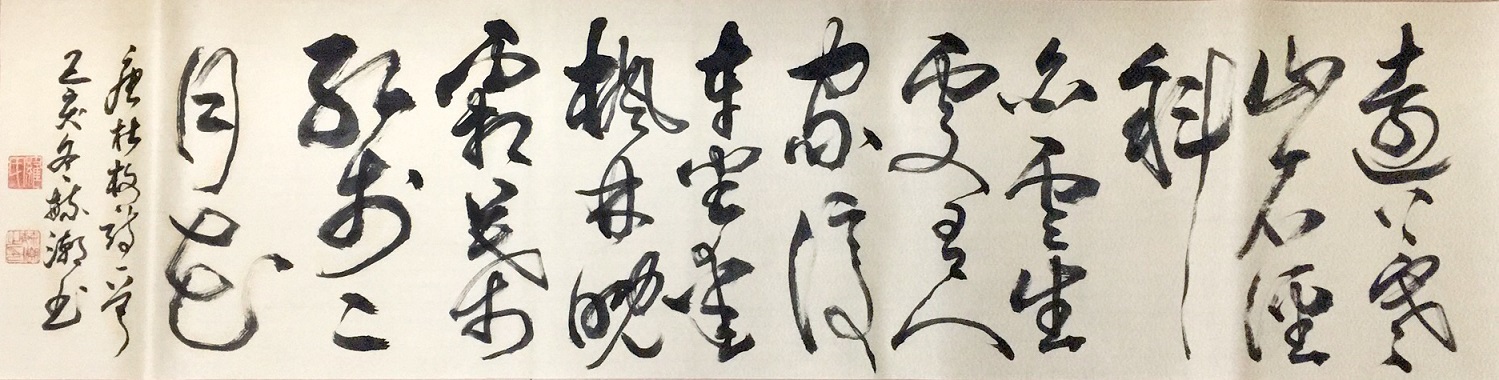 遠上寒
山石徑
斜
白雲生
處有人
家停
車坐愛
楓林晚
霜葉
紅於二
月花
唐杜牧詩一首
己亥冬潮书